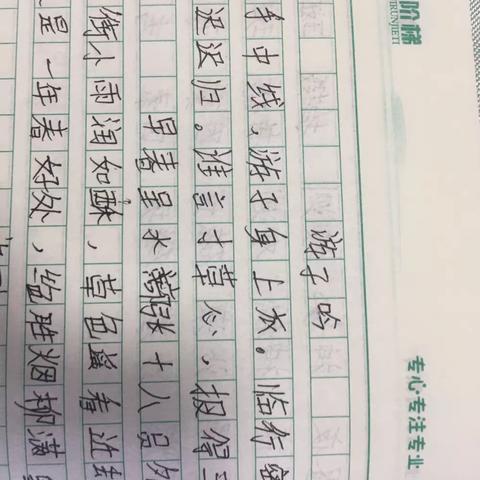 阶梯
游子吟
手中线，游子身上衣。临行密
迟迟归。谁言寸草心，报得三
早春呈水张十八员外
街小雨润如酥，草色遥看近却
是一年春好处，绝胜烟柳满
专心·专注·专业